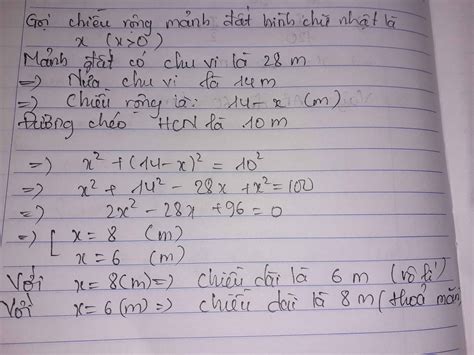 Gọi chiều rộng mảnh đất hình chữ nhật là
x (x>0)
Mảnh đất có chu vi là 28 m
=> Nửa chu vi là 14 m
=> Chiều rộng là: 14 - x (m)
Đường chéo HCN là 10 m
=> x² + (14-x)² = 10²
=> x² + 14² - 28x + x² = 100
=> 2x² - 28x + 96 = 0
=> [ x = 8 (m)
x = 6 (m)
Với x = 8(m) => chiều dài là 6 m (vô lí)
Với x = 6(m) => chiều dài là 8 m (thoả mãn